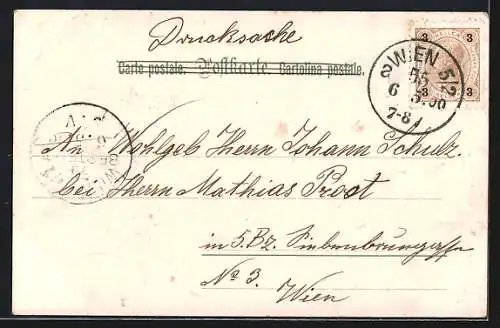 Drucksache
Carte postale. Postkarte. Cartolina postale.
3 3
3 3
WIEN 5/2
55
6 5.00
7-8
An Wohlgeb Herrn Johann Schulz.
bei Herrn Mathias Prost
in 5. Bz. Siebenbrunngasse
No 3.
Wien